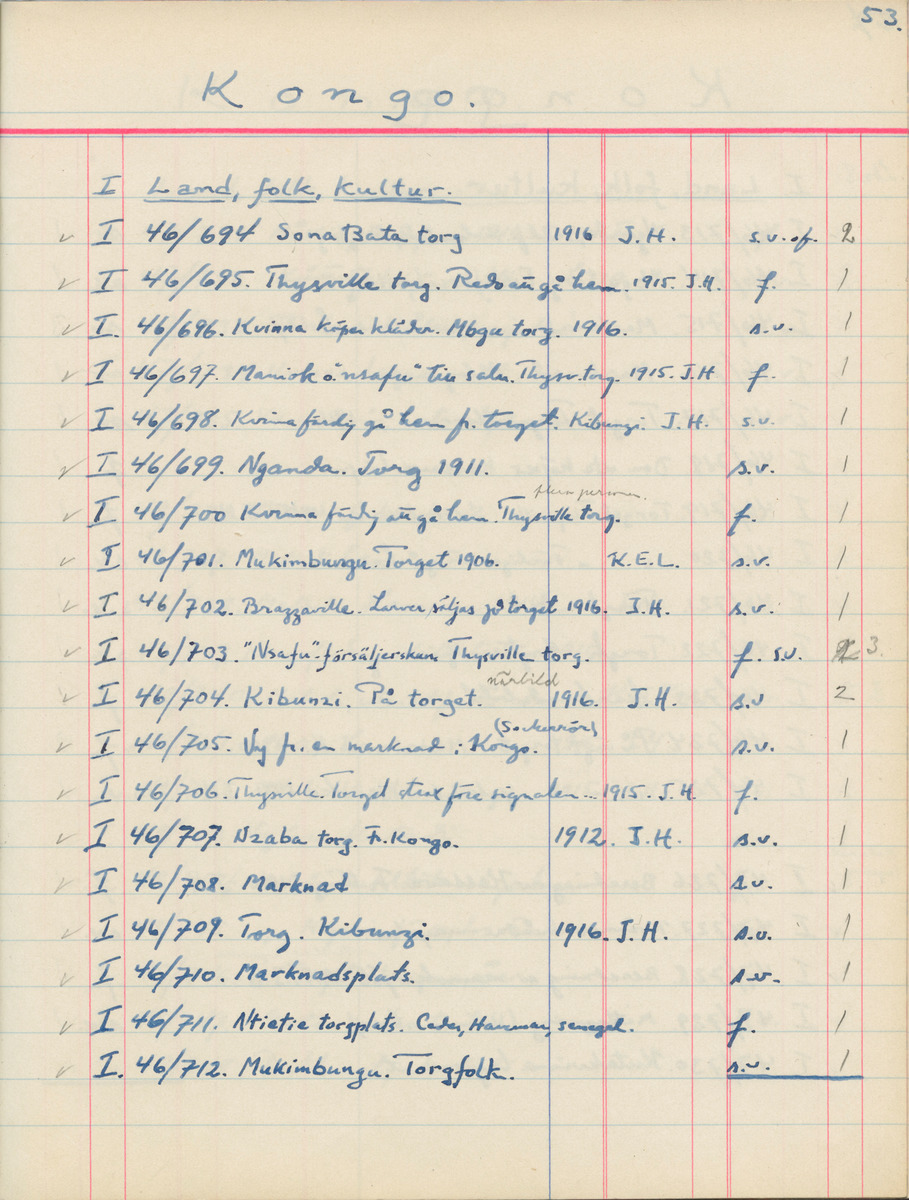 53.
Kongo.
I Land, folk, kultur.
✓ I 46/694 Sona Bata torg 1916 J.H. s.v. of. 2
✓ I 46/695. Thysville torg. Redo att gå hem. 1915. J.H. f. 1
✓ I. 46/696. Kvinna köper kläder. Mbga torg. 1916. s.v. 1
✓ I 46/697. Maniok o. "nsafu" till salu. Thysv. torg. 1915. J.H f. 1
✓ I 46/698. Kvinna färdig gå hem fr. torget. Kibunzi. J.H. s.v. 1
✓ I 46/699. Nganda. Torg 1911. s.v. 1
flera personer.
✓ I 46/700 Kvinna färdig att gå hem. Thysville torg. f. 1
✓ I 46/701. Mukimbungu. Torget 1906. K.E.L. s.v. 1
✓ I 46/702. Brazzaville. Larver säljas på torget 1916. J.H. s.v. 1
✓ I 46/703. "Nsafu"-försäljerskan Thysville torg. f. s.v. 3.
närbild
✓ I 46/704. Kibunzi. På torget. 1916. J.H. s.v 2
(Sockerrör)
✓ I 46/705. Vy fr. en marknad i Kongo. s.v. 1
✓ I 46/706. Thysville. Torget strax före signalen... 1915. J.H. f. 1
✓ I 46/707. Nzaba torg. Fr. Kongo. 1912. J.H. s.v. 1
✓ I 46/708. Marknad s.v. 1
✓ I 46/709. Torg. Kibunzi. 1916. J.H. s.v. 1
✓ I 46/710. Marknadsplats. s.v. 1
✓ I 46/711. Ntietie torgplats. senegal. f. 1
✓ I. 46/712. Mukimbungu. Torgfolk. s.v. 1